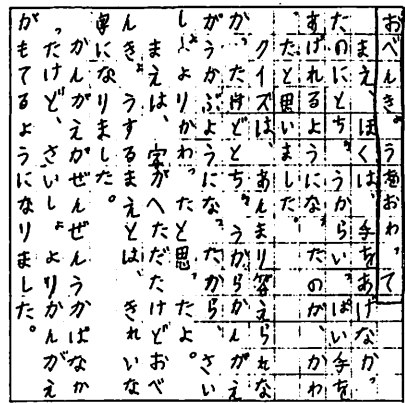 おべんきょうをおわって
まえ、ぼくは、手をあげなかっ
たのにとちゅうからいっぱい手を
あげれるようになったのが、かわ
ったと思いました。
クイズは、あんまり答えられな
かったけどとちゅうからかんがえ
がうかぶようになったから、さい
しょよりかわったと思ったよ。
まえは、字がへただたけどおべ
んきょうするまえとは、きれいな
字になりました。
かんがえがぜんぜんうかばなか
ったけど、さいしょよりかんがえ
がもてるようになりました。